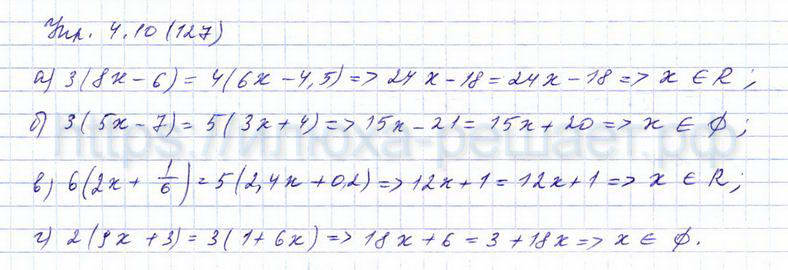 Упр. 4.10 (127)
а) 3(8x-6) = 4(6x-4,5) => 24x-18 = 24x-18 => x ∈ R;
б) 3(5x-7) = 5(3x+4) => 15x-21 = 15x+20 => x ∈ ∅;
в) 6(2x + 1/6) = 5(2,4x+0,2) => 12x+1 = 12x+1 => x ∈ R;
г) 2(9x+3) = 3(1+6x) => 18x+6 = 3+18x => x ∈ ∅.
https://илюха-решает.рф